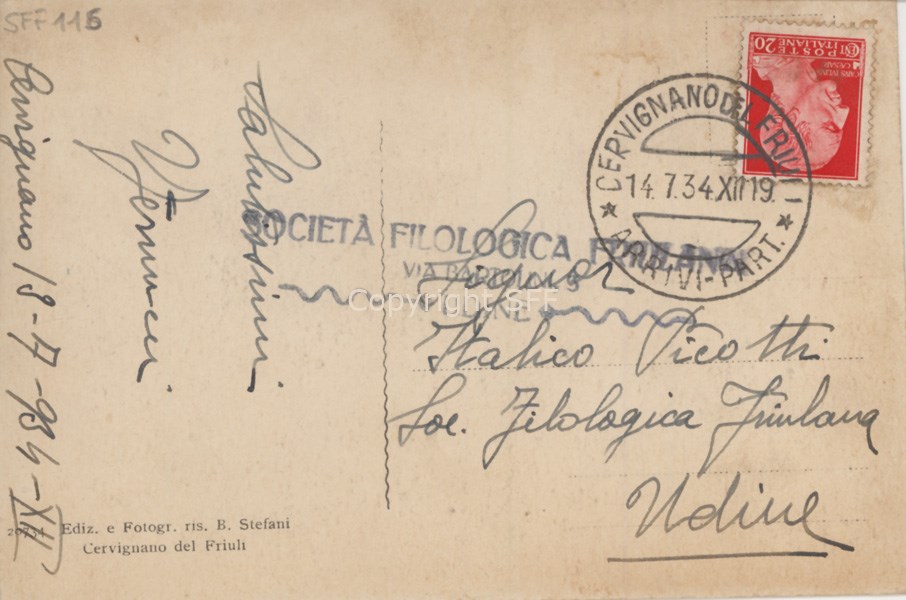 SFF 115
Cervignano 13-7-934-XII
Salutissimi
SOCIETÀ FILOLOGICA FRIULANA
VIA
UDINE
Copyright SFF
CERVIGNANO DEL FRIULI
14.7.34.XII 19
ARRIVI-PART.
CENT 20
POSTE ITALIANE
CAESAR
Italico Picotti
Soc. Filologica Friulana
Udine
20734 Ediz. e Fotogr. ris. B. Stefani
Cervignano del Friuli